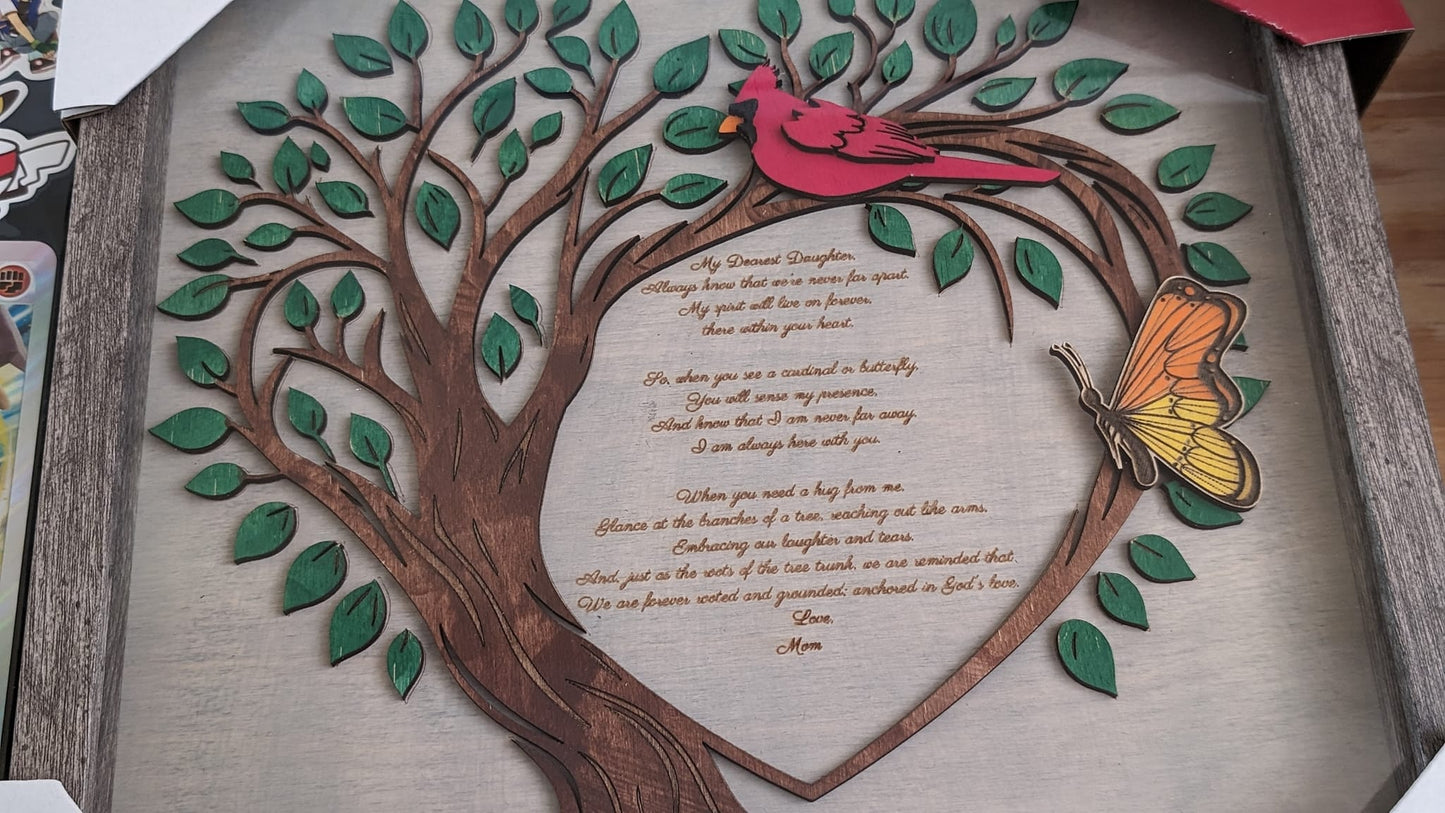 My Dearest Daughter,
Always know that we're never far apart.
My spirit will live on forever,
there within your heart.
So, when you see a cardinal or butterfly,
You will sense my presence,
And know that I am never far away.
I am always here with you.
When you need a hug from me,
Glance at the branches of a tree, reaching out like arms,
Embracing our laughter and tears.
And, just as the roots of the tree trunk, we are reminded that
We are forever rooted and grounded; anchored in God's love.
Love,
Mom